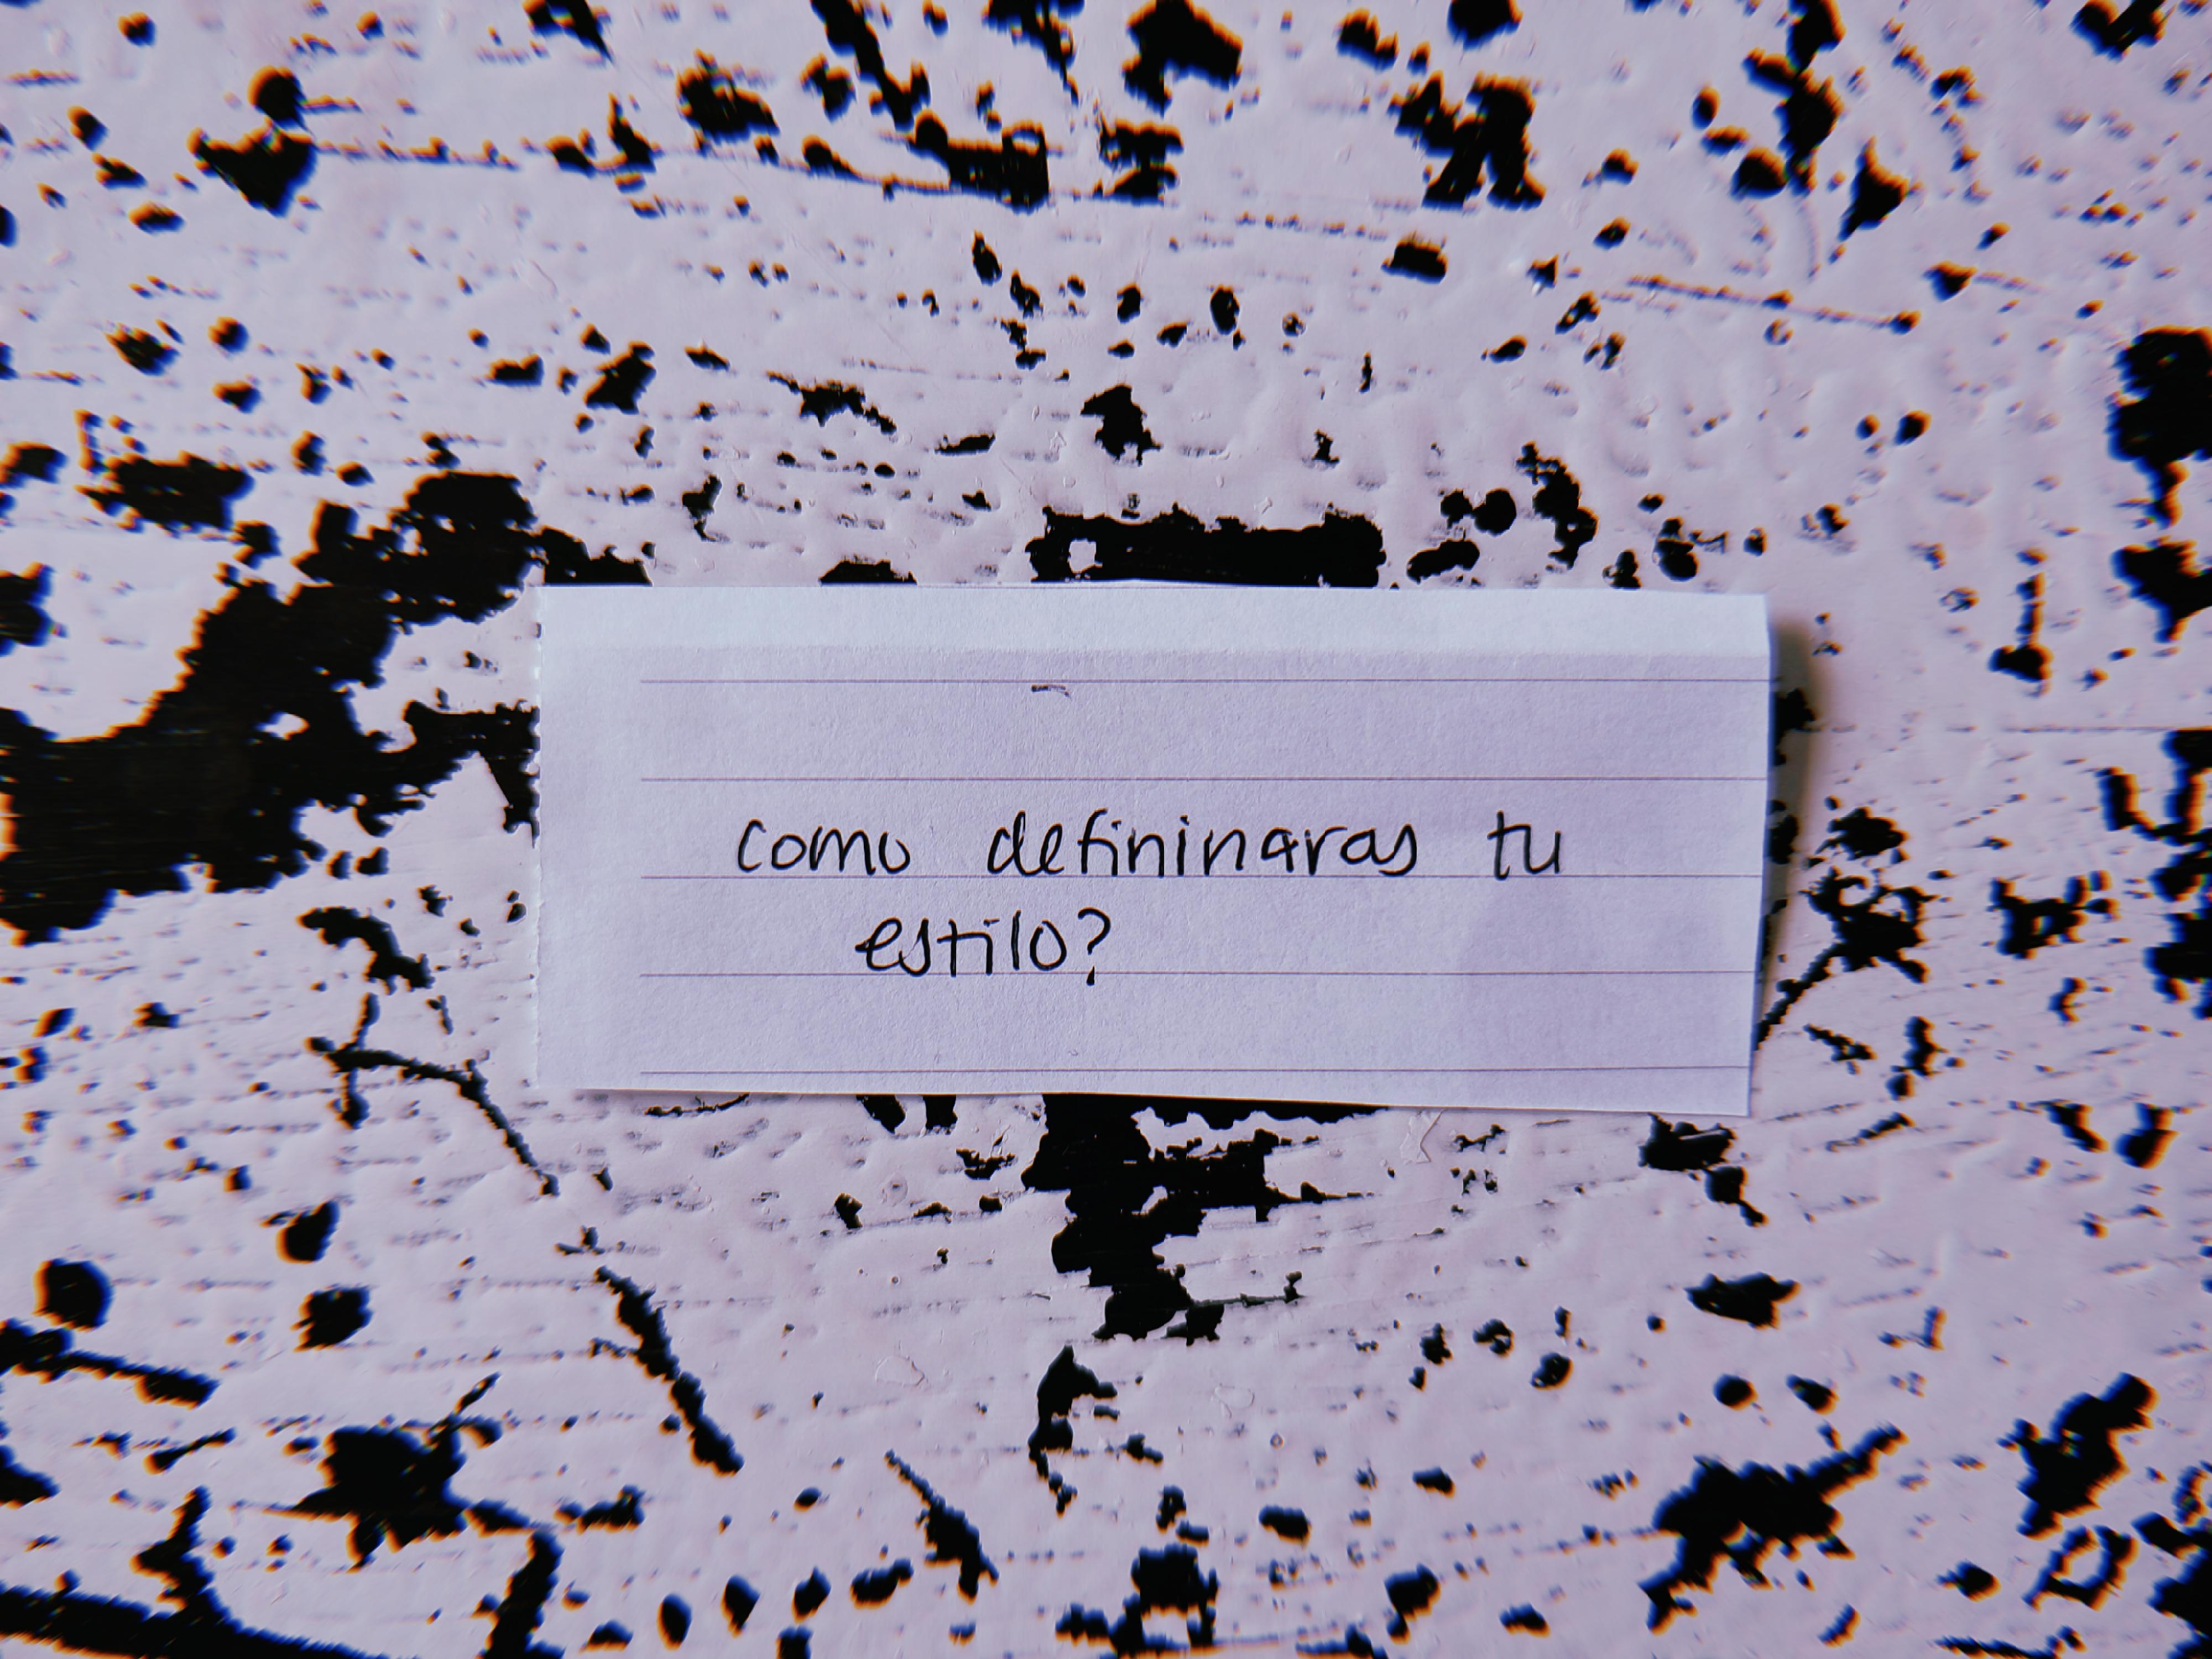 como defininaras tu
estilo?